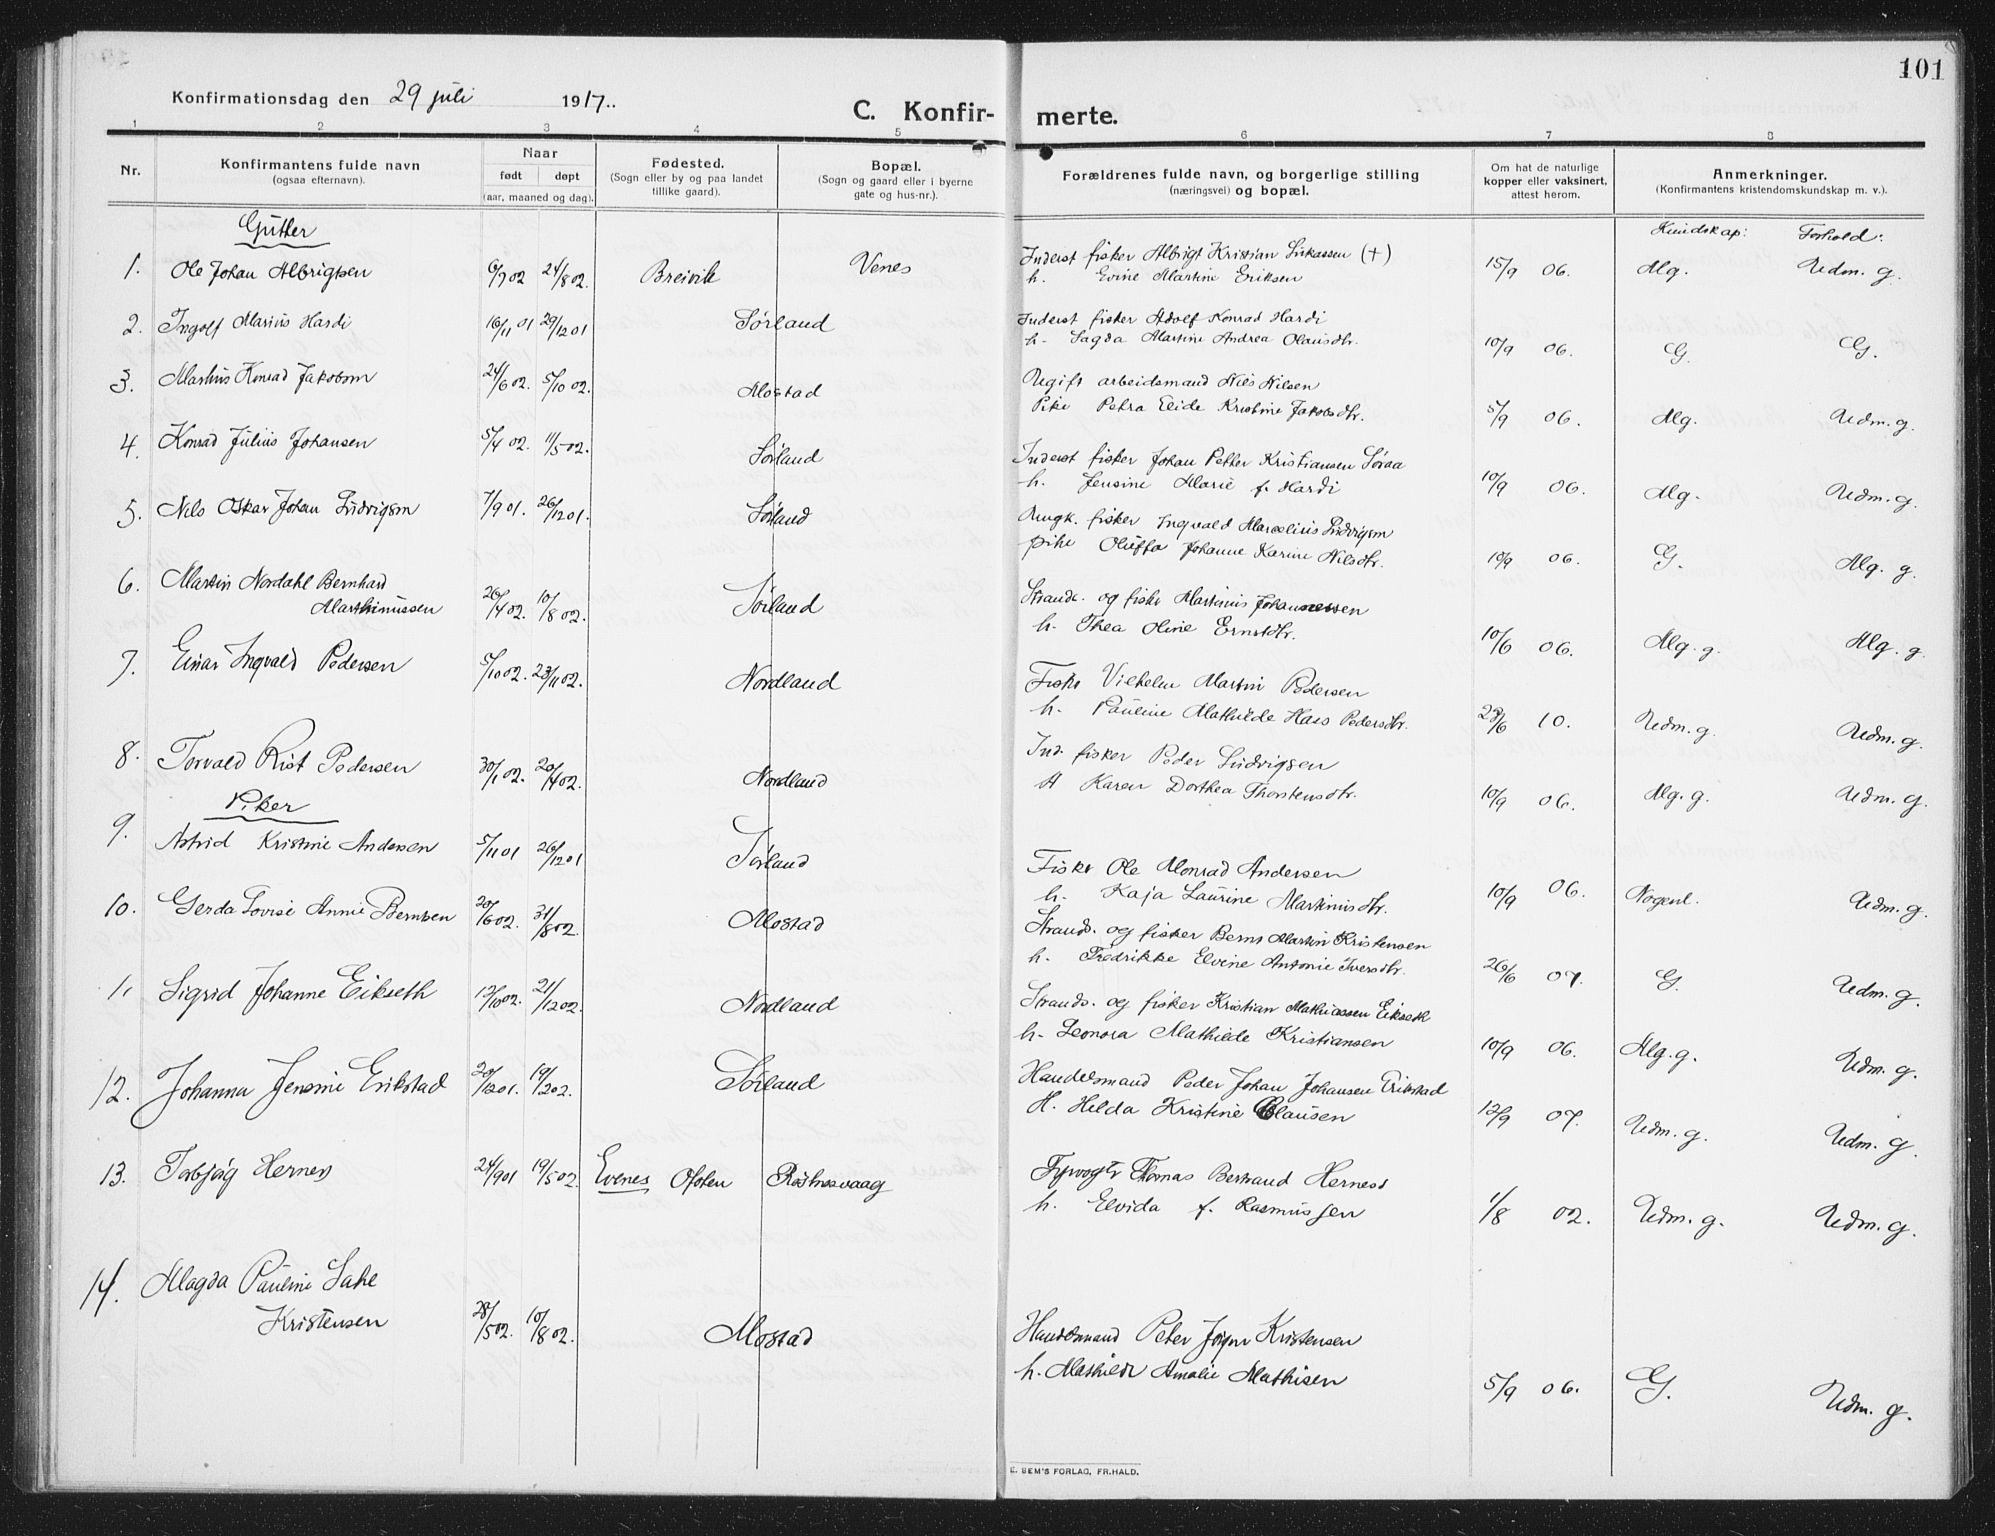 101
Konfirmationsdag den 29 juli 1917.
C. Konfir- merte.
1 2 3 4 5 6 7 8
Nr.
Konfirmantens fulde navn
(ogsaa efternavn).
Naar
født døpt
(aar, maaned og dag).
Fødested.
(Sogn eller by og paa landet
tillike gaard).
Bopæl.
(Sogn og gaard eller i byerne
gate og hus-nr.).
Forældrenes fulde navn, og borgerlige stilling
(næringsvei) og bopæl.
Om hat de naturlige
kopper eller vaksinert,
attest herom.
Anmerkninger.
(Konfirmantens kristendomskundskap m. v.).
Gutter
Kundskap: Forhold:
1. Ole Johan Albrigtsen 6/7 02 24/8 02. Breivik Venes Inderst fisker Albrigt Kristian Lukassen (+)
h. Evine Martine Eriksen 15/9 06. Mg. Udm. g.
2. Ingolf Marius Hardi 16/11 01 29/12 01 Sørland Inderst fisker Adolf Konrad Hardi
h. Magda Martine Andrea Olausdtr. 10/9 06. G. G.
3. Marius Konrad Jakobsen 24/6 02. 5/10 02. Mostad Ugift arbeidsmand Nils Nilsen
Pike Petra Elide Kristine Jakobsdtr. 5/9 06. Mg. Udm. g.
4. Konrad Julius Johansen 5/4 02. 11/5 02. Sørland Inderst fisker Johan Petter Kristiansen Søraa
h. Jensine Marie f. Hardi 10/9 06. Mg. Udm. g.
5. Nils Oskar Johan Ludvigsen 7/9 01. 26/12 01. Sørland Ungk. fisker Ingvald Marcelius Ludvigsen
pike Oluffa Johanne Karine Nilsdtr. 10/9 06. G. Mg. g.
6. Martin Nordahl Bernhard
Marthinussen 26/4 02. 10/8 02. Sørland Strands. og fisker Martinus Johannessen
h. Thea Oline Ernstdtr. 10/6 06. Mg. g. Mg. g.
7. Einar Ingvald Pedersen 5/10 02. 23/11 02. Nordland Fisker Vilhelm Martin Pedersen
h. Pauline Mathilde Hass Pedersdtr. 10. Udm. g. Udm. g.
8. Torvald Rist Pedersen 30/1 02. 20/4 02. Nordland Ind. fisker Peder Ludvigsen
H Karen Dorthea Thorstensdtr. 10/9 06. Mg. g. Udm. g.
Piker
9. Astrid Kristine Andersen 5/11 01 26/12 01 Sørland Fisker Ole Monrad Andersen
h. Kaja Laurine Martinusdtr. 10/9 06. Nogenl. Udm. g.
10. Gerda Lovise Annie Berntsen 20/6 02. 31/8 02. Mostad Strands. og fisker Bernt Martin Kristensen
h. Fredrikke Elvine Antonie Iversdtr. 26/6 07. G. Udm. g.
11 Sigrid Johanne Eikseth 12/10 02. 21/12 02. Nordland Strands. og fisker Kristian Mathiassen Eikseth
h. Leonora Mathilde Kristiansen 10/9 06. Mg. g. Udm. g.
12. Johanna Jensine Erikstad 20/12 01. 19/2 02. Sørland Handelsmand Peder Johan Johansen Erikstad
H. Hilda Kristine Clausen 12/9 07. Udm. g. Udm. g.
13. Torbjørg Hernes 24/9 01 19/5 02. Evenes Ofoten Røstnesvaag Fyrvogter Thomas Bertrand Herness
h. Elvida f. Rasmussen 1/8 02. Udm. g. Udm. g.
14. Magda Pauline
Kristensen 28/5 02. 10/8 02. Mostad Handelsmand Peter Jørgen Kristensen
h. Mathilde Amalie Mathisen 5/9 06. G. Udm. g.
E. SEM'S FORLAG, FR.HALD.